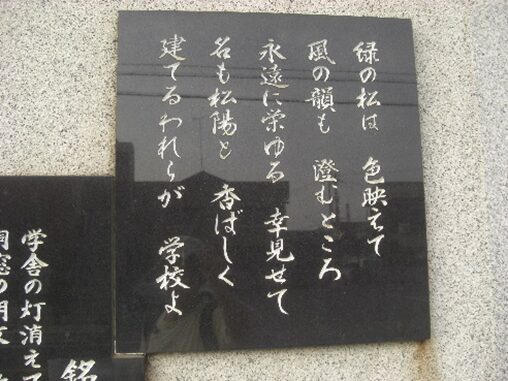 緑の松は 色映えて
風の韻も 澄むところ
永遠に栄ゆる 幸見せて
名も松陽と 香ばしく
建てるわれらが 学校よ
銘
学舎の灯消えて